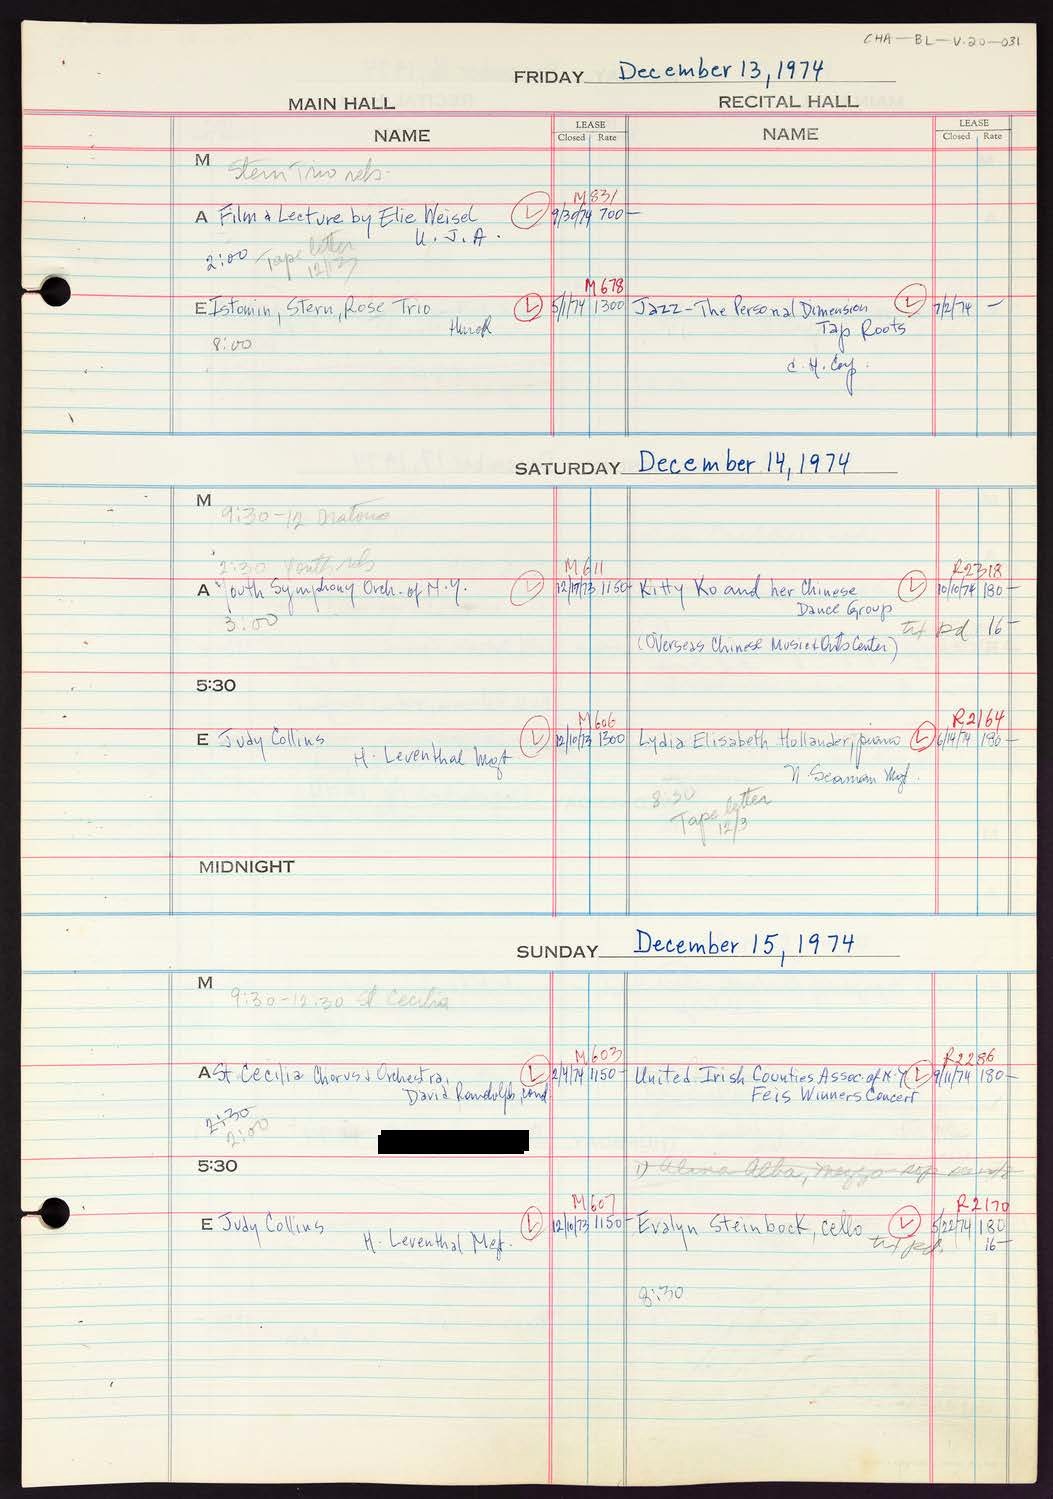 CHA-BL-V.20-031
FRIDAY December 13, 1974
MAIN HALL RECITAL HALL
NAME LEASE Closed Rate NAME LEASE Closed Rate
M Stern Trio rehs.
M831
A Film & Lecture by Elie Weisel L 9/30/74 700-
U.J.A.
2:00 Tape letter
12/12
M678
E Istomin, Stern, Rose Trio L 5/1/74 1300 Jazz-The Personal Dimension L 7/2/74 -
Hurok Tap Roots
8:00
C.H. Corp.
SATURDAY December 14, 1974
M
9:30-12 Oratorio
2:30 Youth rehs
M611 R2318
A Youth Symphony Orch. of N.Y. L 12/19/73 1150- Kitty Ko and her Chinese L 10/10/74 180-
3:00 Dance Group
txt pd 16-
(Overseas Chinese Music & Arts Center)
5:30
M606 R2164
E Judy Collins L 12/10/73 1300 Lydia Elisabeth Hollander, piano L 6/14/74 180-
H. Leventhal Mgt N. Seaman Mgt.
8:30
Tape letter
12/3
MIDNIGHT
SUNDAY December 15, 1974
M
9:30-12:30 St Cecilia
M603 R2286
A St Cecilia Chorus & Orchestra, L 2/4/74 1150- United Irish Counties Assoc. of N.Y. L 9/11/74 180-
David Randolph, cond. Feis Winners Concert
2:30
2:00
5:30 Alba, mezzo sop
M607 R2170
E Judy Collins L 12/10/73 1150- Evalyn Steinbock, cello L 5/22/74 180
H. Leventhal Mgt. txt pd. 16-
8:30